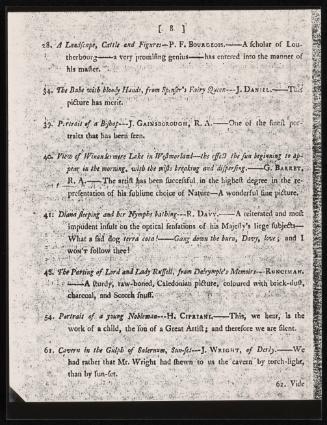 [ 8 ]
28. A Landscape, Cattle and Figures—P. F. BOURGEOIS.——A scholar of Lou-
therbourg——a very promising genius——has entered into the manner of
his master.
34. The Babe with bloody Hands, from Spenser's Fairy Queen—J. DANIEL.——This
picture has merit.
39. Portrait of a Bishop—J. GAINSBOROUGH, R. A.——One of the finest por-
traits that has been seen.
40. View of Winandermere Lake in Westmorland—the effect the sun beginning to ap-
pear in the morning, with the mists breaking and dispersing.—G. BARRET,
R. A.——The artist has been successful in the highest degree in the re-
presentation of his sublime choice of Nature—A wonderful fine picture.
41. Diana sleeping and her Nymphs bathing—R. DAVY.——A reiterated and most
impudent insult on the optical sensations of his Majesty's liege subjects—
What a sad dog terra cota!——Gang down the burn, Davy, love; and I
won't follow thee!
48. The Parting of Lord and Lady Russell, from Dalrymple's Memoirs—RUNCIMAN.
——A sturdy, raw-boned, Caledonian picture, coloured with brick-dust,
charcoal, and Scotch snuff.
54. Portrait of a young Nobleman—H. CIPRIANI.——This, we hear, is the
work of a child, the son of a Great Artist; and therefore we are silent.
61. Cavern in the Gulph of Salernum, Sun-set—J. WRIGHT, of Derby.——We
had rather that Mr. Wright had shewn to us the cavern by torch-light,
than by sun-set.
62. Vide